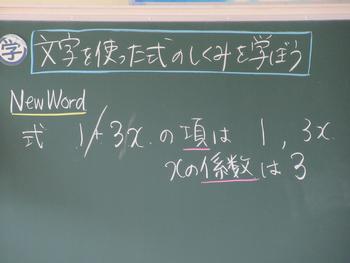 学 文字を使った式のしくみを学ぼう
New Word
式 1+3x の項は 1, 3x
xの係数は3